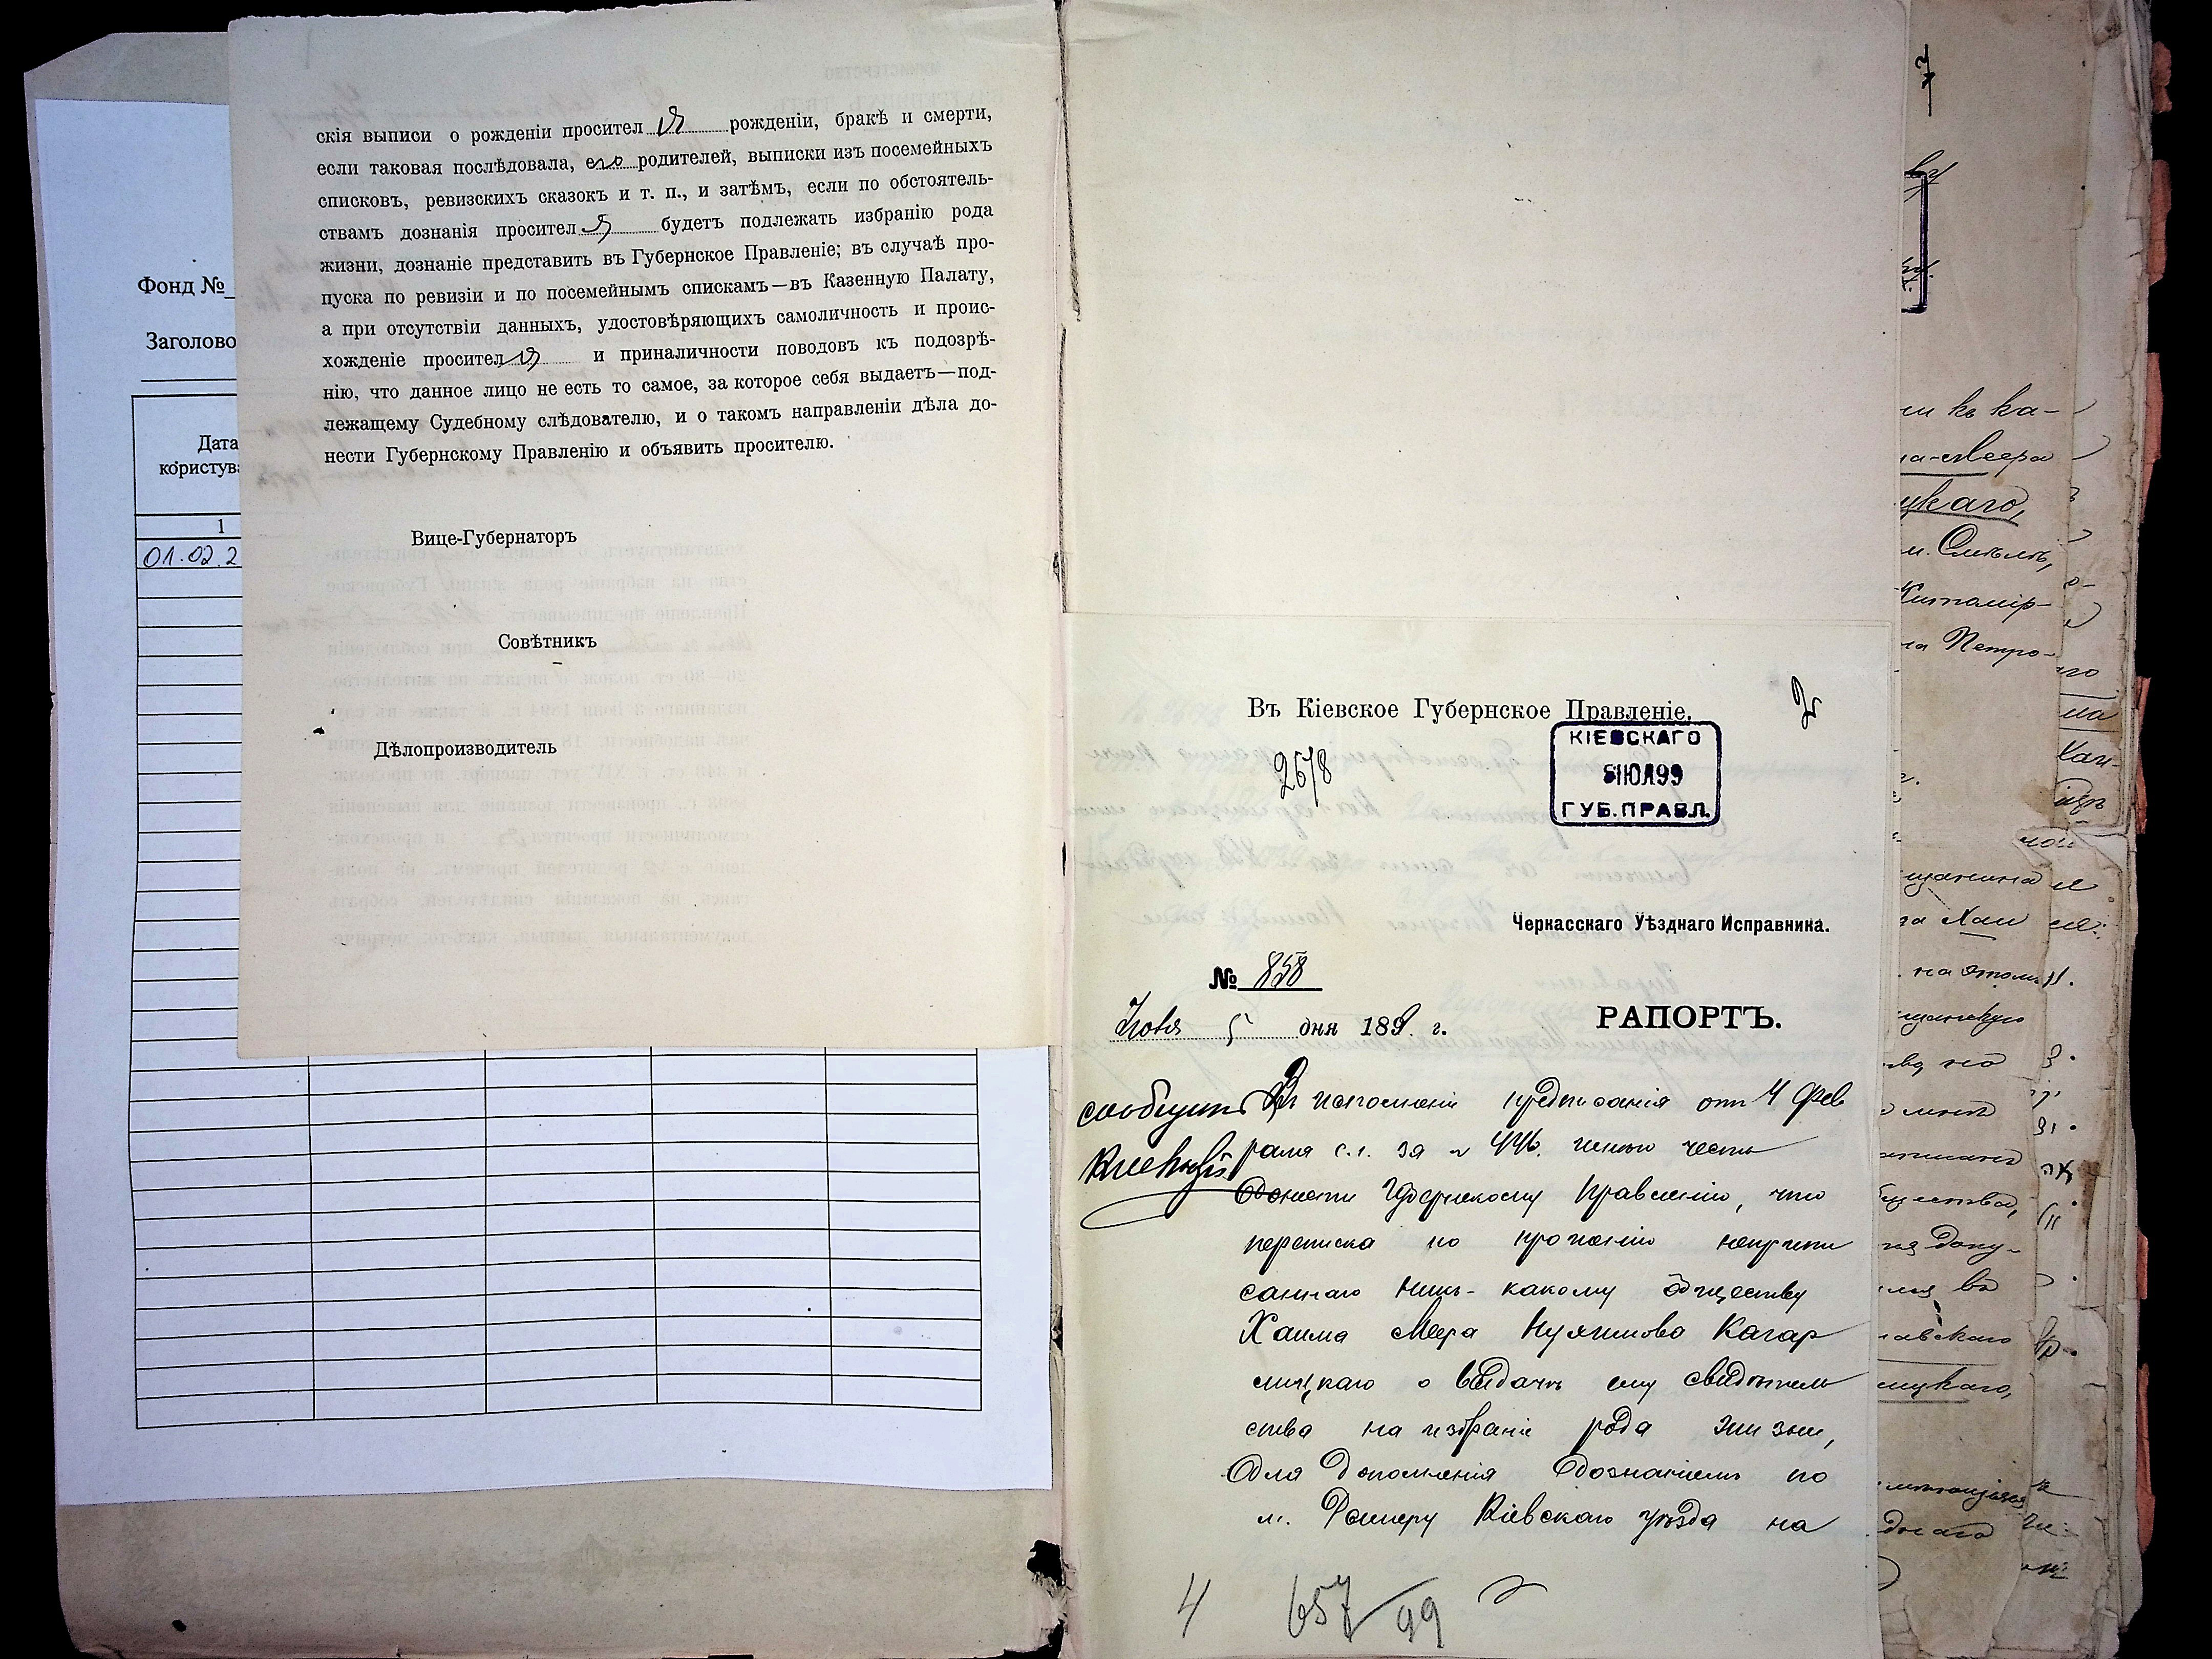 Фонд №
Заголово
Дата
користува
1
01.02.2
скія выписи о рожденіи просител я рожденіи, бракѣ и смерти,
если таковая послѣдовала, его родителей, выписки изъ посемейныхъ
списковъ, ревизскихъ сказокъ и т. п., и затѣмъ, если по обстоятель-
ствамъ дознанія просител я будетъ подлежать избранію рода
жизни, дознаніе представить въ Губернское Правленіе; въ случаѣ про-
пуска по ревизіи и по посемейнымъ спискамъ—въ Казенную Палату,
а при отсутствіи данныхъ, удостовѣряющихъ самоличность и проис-
хожденіе просител я и приналичности поводовъ къ подозрѣ-
нію, что данное лицо не есть то самое, за которое себя выдаетъ—под-
лежащему Судебному слѣдователю, и о такомъ направленіи дѣла до-
нести Губернскому Правленію и объявить просителю.
Вице-Губернаторъ
Совѣтникъ
Дѣлопроизводитель
2
Въ Кіевское Губернское Правленіе.
2678
КІЕВСКАГО
5ІЮЛ99
ГУБ.ПРАВЛ.
Черкасскаго Уѣзднаго Исправника.
№ 858
5 дня 1899 г.
РАПОРТЪ.
сообщить
Въ исполненіе предписанія отъ 4 Фев
раля с.г. за № 446. имѣю честь
донести Губернскому Правленію, что
переписка по прошенію неприпи
саннаго ни къ какому обществу
Хаима Меера Нухимова Кагар
лицкаго о выдачѣ ему свидѣтель
ства на избраніе рода жизни,
для дополненія дознаніемъ по
м. Кіевскаго уѣзда на
4 657/99
ли къ ка-
на-Меера
цкаго,
м. Смѣлѣ,
Житомір-
на Петро-